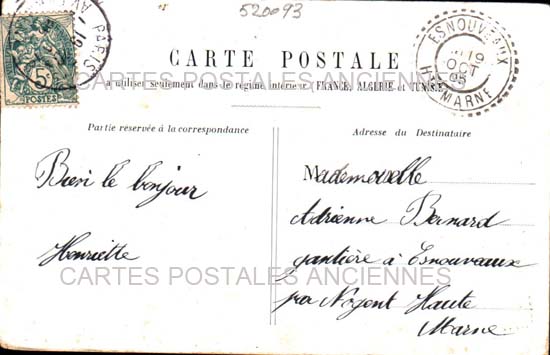 520093
PARIS
5c
POSTES
ESNOUVEAUX
19
OCT
05
HTE MARNE
CARTE POSTALE
CARTES POSTALES ANCIENNES
à utiliser seulement dans le régime intérieur (FRANCE, ALGERIE et TUNISIE)
Partie réservée à la correspondance
Adresse du Destinataire
le bonjour
Henriette
Mademoiselle
Adrienne Bernard
gantière à Esnouvaux
par Nogent Haute
Marne
CARTES POSTALES ANCIENNES